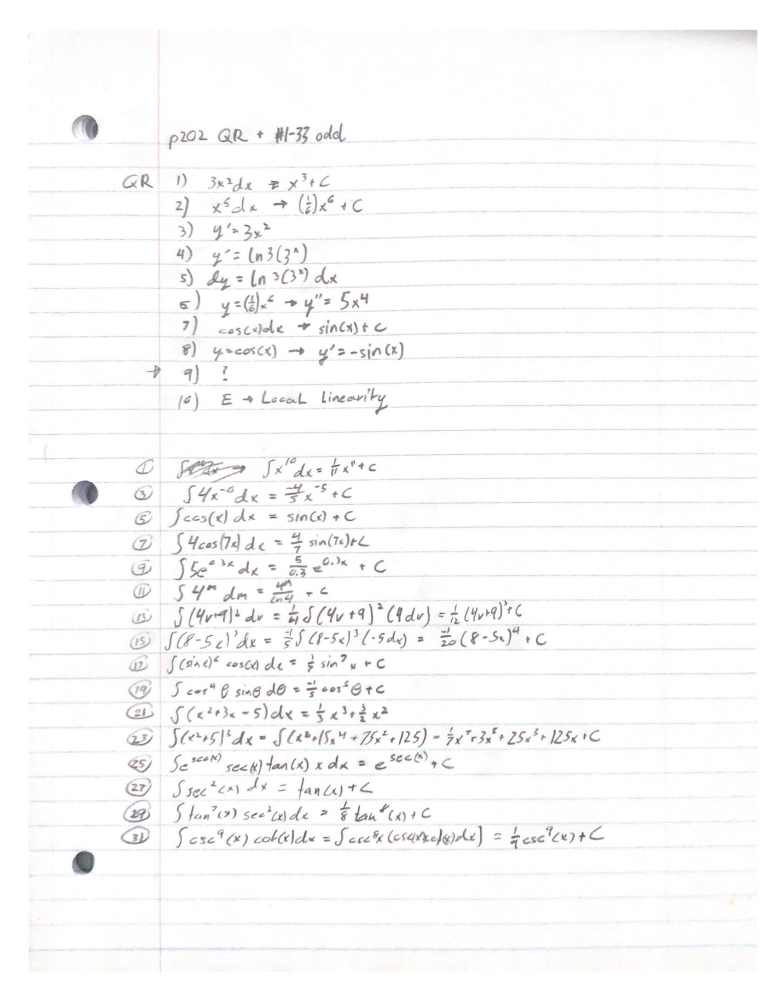 p202 QR + #1-33 odd
QR 1) 3x²dx → x³+C
2) x⁵dx → (1/6)x⁶ + C
3) y' = 3x²
4) y' = ln3(3ˣ)
5) dy = ln 3(3ˣ) dx
6) y=(1/6)x⁶ → y'' = 5x⁴
7) cos(x)dx → sin(x)+C
8) y=cos(x) → y' = -sin(x)
→ 9) ?
10) E → Local Linearity
① ∫x¹⁰ dx = 1/11 x¹¹ + C
③ ∫4x⁻⁶ dx = -4/5 x⁻⁵ + C
⑤ ∫cos(x) dx = sin(x) + C
⑦ ∫4cos(7x) dx = 4/7 sin(7x)+C
⑨ ∫5e^0.3x dx = 5/0.3 e^0.3x + C
⑪ ∫4ᵐ dm = 4ᵐ/ln4 + C
⑬ ∫(4v+9)² dv = 1/4 ∫(4v+9)²(4dv) = 1/12 (4v+9)³+C
⑮ ∫(8-5x)³dx = -1/5 ∫(8-5x)³(-5dx) = -1/20 (8-5x)⁴ + C
⑰ ∫(sinx)⁶ cos(x) dx = 1/7 sin⁷ x + C
⑲ ∫cos⁴ θ sinθ dθ = -1/5 cos⁵ θ + C
㉑ ∫(x²+3x-5)dx = 1/3 x³+3/2 x²
㉓ ∫(x²+5)³dx = ∫(x⁶+15x⁴+75x²+125) = 1/7 x⁷+3x⁵+25x³+125x+C
㉕ ∫e^sec(x) sec(x) tan(x) x dx = e^sec(x) + C
㉗ ∫sec²(x) dx = tan(x)+C
㉙ ∫tan⁷(x) sec²(x)dx = 1/8 tan⁸(x)+C
㉛ ∫csc⁹(x) cot(x)dx = ∫csc⁸x dx] = 1/9 csc⁹(x)+C